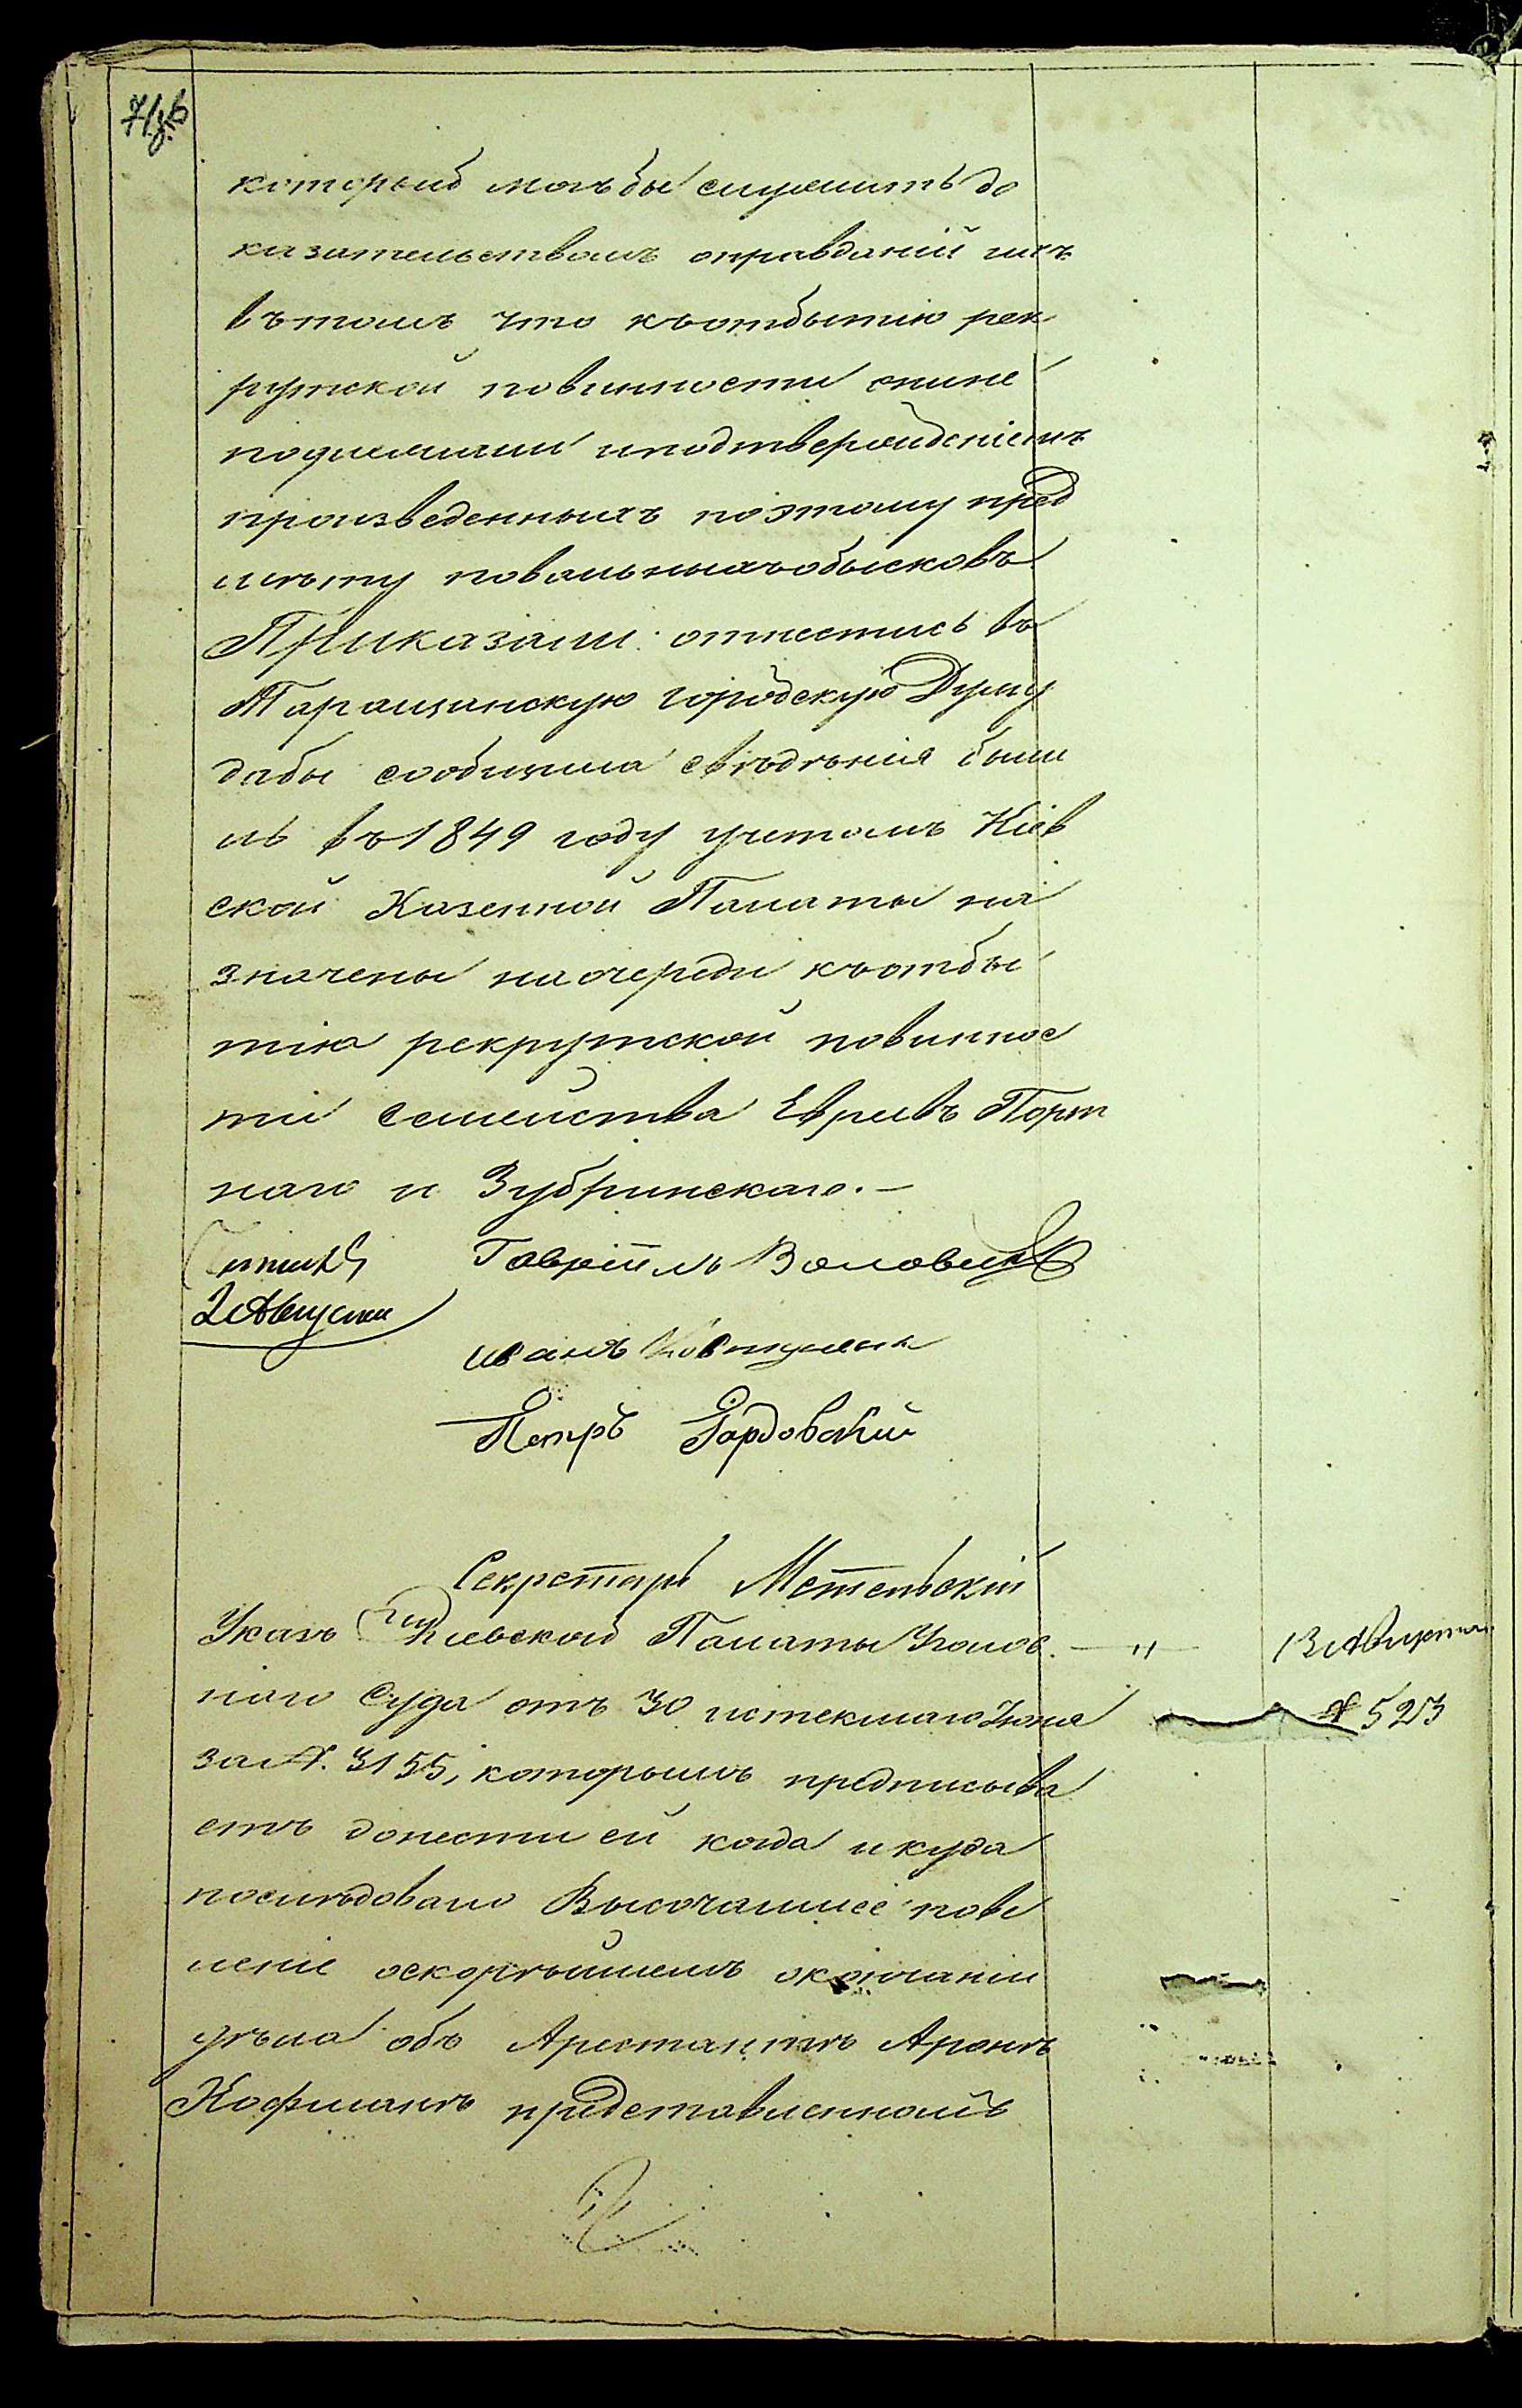 который могъ бы служить до
казательствомъ оправданій ихъ
въ томъ что къ отбытію рек
рутской повинности они не
подлежали и подтвержденіемъ
произведенныхъ по этому пред
мѣту повальныхъ обысковъ
Приказали: отнестись въ
Таращанскую городскую Думу
дабы сообщила свѣдѣнія были
ль въ 1849 году учетомъ Кіев
ской Казенной Палаты на
значены на очереди къ отбы
тію рекрутской повиннос
ти семейства Евреевъ Порт
наго и Зубринскаго.—
Гавріилъ
2 Августа
Иванъ
Петръ Гордовскій
Секретарь Метельскій
Указъ Кіевской Палаты Уголов. — " — 13 Августа
наго Суда отъ 30 истекшаго Іюня № 523
за №. 3155, которымъ предписыва
етъ донести ей когда и куда
послѣдовало Высочайшее пове
леніе о скорѣйшемъ окончаніи
дѣла объ Арестантѣ Аронѣ
Кофманѣ представленномъ